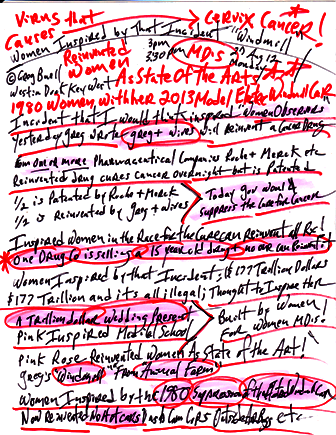 Virus that
Causes → Cervix Cancer!
Women Inspired by That Incident "Windmill"
Reinvented
Women
3pm
3:30pm
MD's
Monday
© Greg Buell
Westin Dock Key West
As State Of The Arts
1980 Women with her 2013 Model Elec Windmill Car
Incident that I would think inspired Women Observers
Yesterday Greg wrote greg + wives will reinvent a Cancer Drug
from one or more Pharmaceutical Companies Roche + Merck etc
Reinvented drug cures cancer overnight but is Patented
1/2 is Patented by Roche + Merck
1/2 is reinvented by Greg + wives
Today Gov would
Suppress the Cure for Cancer
Inspired Women in the Race for the Cure can reinvent all Rx!
One Drug Co is selling a 15 year old drug + no one can Reinvent
Women Inspired by that Incident; $177 Trillion Dollars
$177 Trillion and it's all illegal; Thought to Inspire
A Trillion dollar Wedding Present
Pink Inspired Medical School
Built by Women
For Women MDs!
Pink Rose Reinvented Women As State of the Art!
Greg's "Windmill" "From Animal Farm"
Women Inspired by the 1980 Suppression of the
Now Reinvented No Hot Cars Dash Cam GPS etc